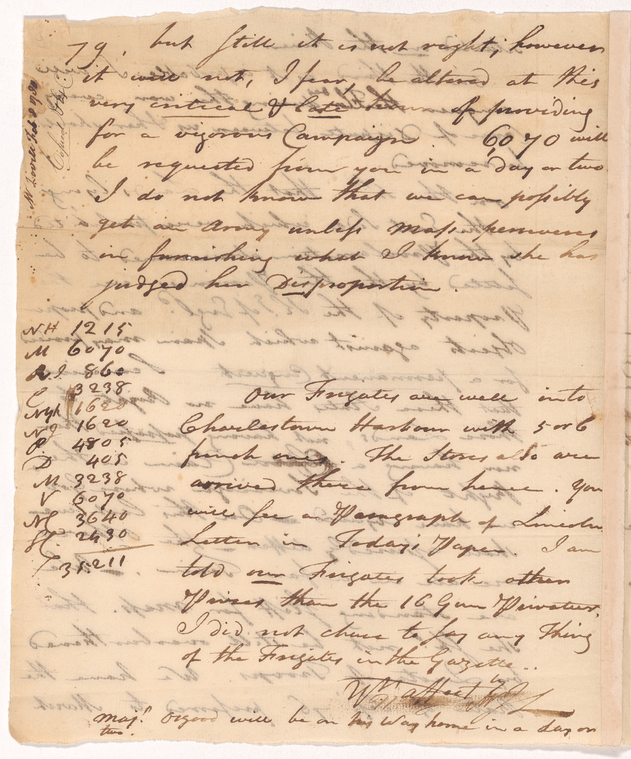 79. but still it is not right; however
it will not, I fear, be altered at this
very critical & late hour of providing
for a vigorous Campaign 6070 will
be requested from you in a day or two
I do not know that we can possibly
get an army unless Mass. perseveres
in furnishing what I know she has
judged her Disproportion.
NH 1215
M 6070
R I 860
C 3238
NYk 1620
NJ 1620
P 4805
D 405
M 3238
V 6070
NC 3640
SC 2430
T 35.211
Our Frigates are well into
Charlestown Harbour with 5 or 6
french ones. The Stores also are
arrived there from hence. You
will see a Paragraph of Lincoln
Letter in Today's Paper. I am
told our Frigates took other
Prizes than the 16 Gun Privateer.
I did not chuse to say any Thing
of the Frigates in the Gazette..
Yr affect
JL
Majr. Osgood will be on his Way home in a day or
two.